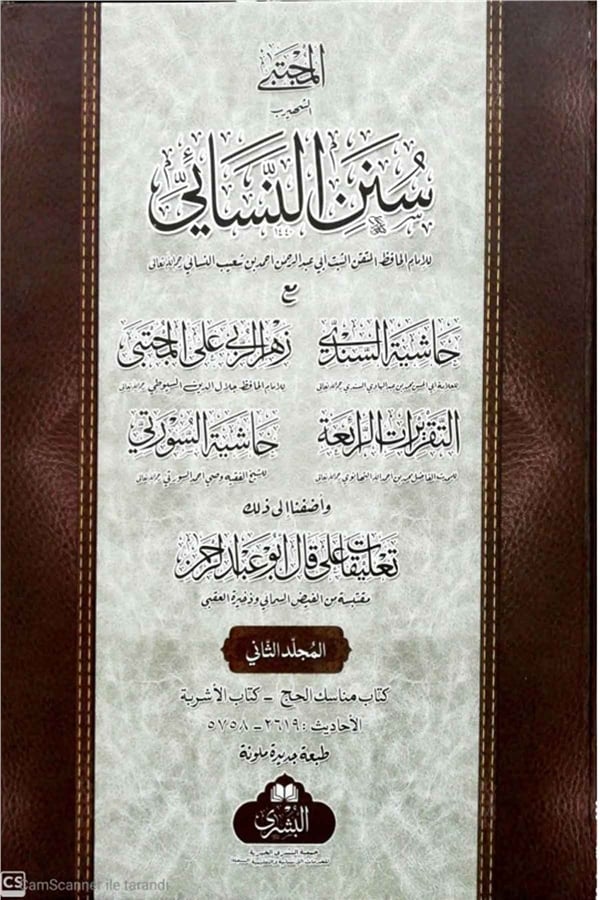 المجتبى
الشهير بـ
سُنَنِ النَّسَائِيّ
١٤٤٠
للإمام الحافظ المتقن الثبت أبي عبد الرحمن أحمد بن شعيب النسائي رحمه الله تعالى
مع
حاشية السندي
للعلامة أبي الحسن محمد بن عبد الهادي السندي رحمه الله تعالى
زهر الربى على المجتبى
للإمام الحافظ جلال الدين السيوطي رحمه الله تعالى
التقريرات الرائعة
للمحدث الفاضل محمد بن أحمد الله التهانوي رحمه الله تعالى
حاشية السورتي
للشيخ الفقيه وصي أحمد السورتي رحمه الله تعالى
وأضفنا إلى ذلك
تعليقات على قال أبو عبد الرحمن
مقتبسة من الفيض السمائي وذخيرة العقبى
المُجلّد الثَّاني
كتاب مناسك الحج - كتاب الأشربة
الأحاديث : ٢٦١٩ - ٥٧٥٨
طبعة جديدة ملونة
البشرى
جمعية البشرى الخيرية
للخدمات الإنسانية والتعليمية
CS CamScanner ile tarandı